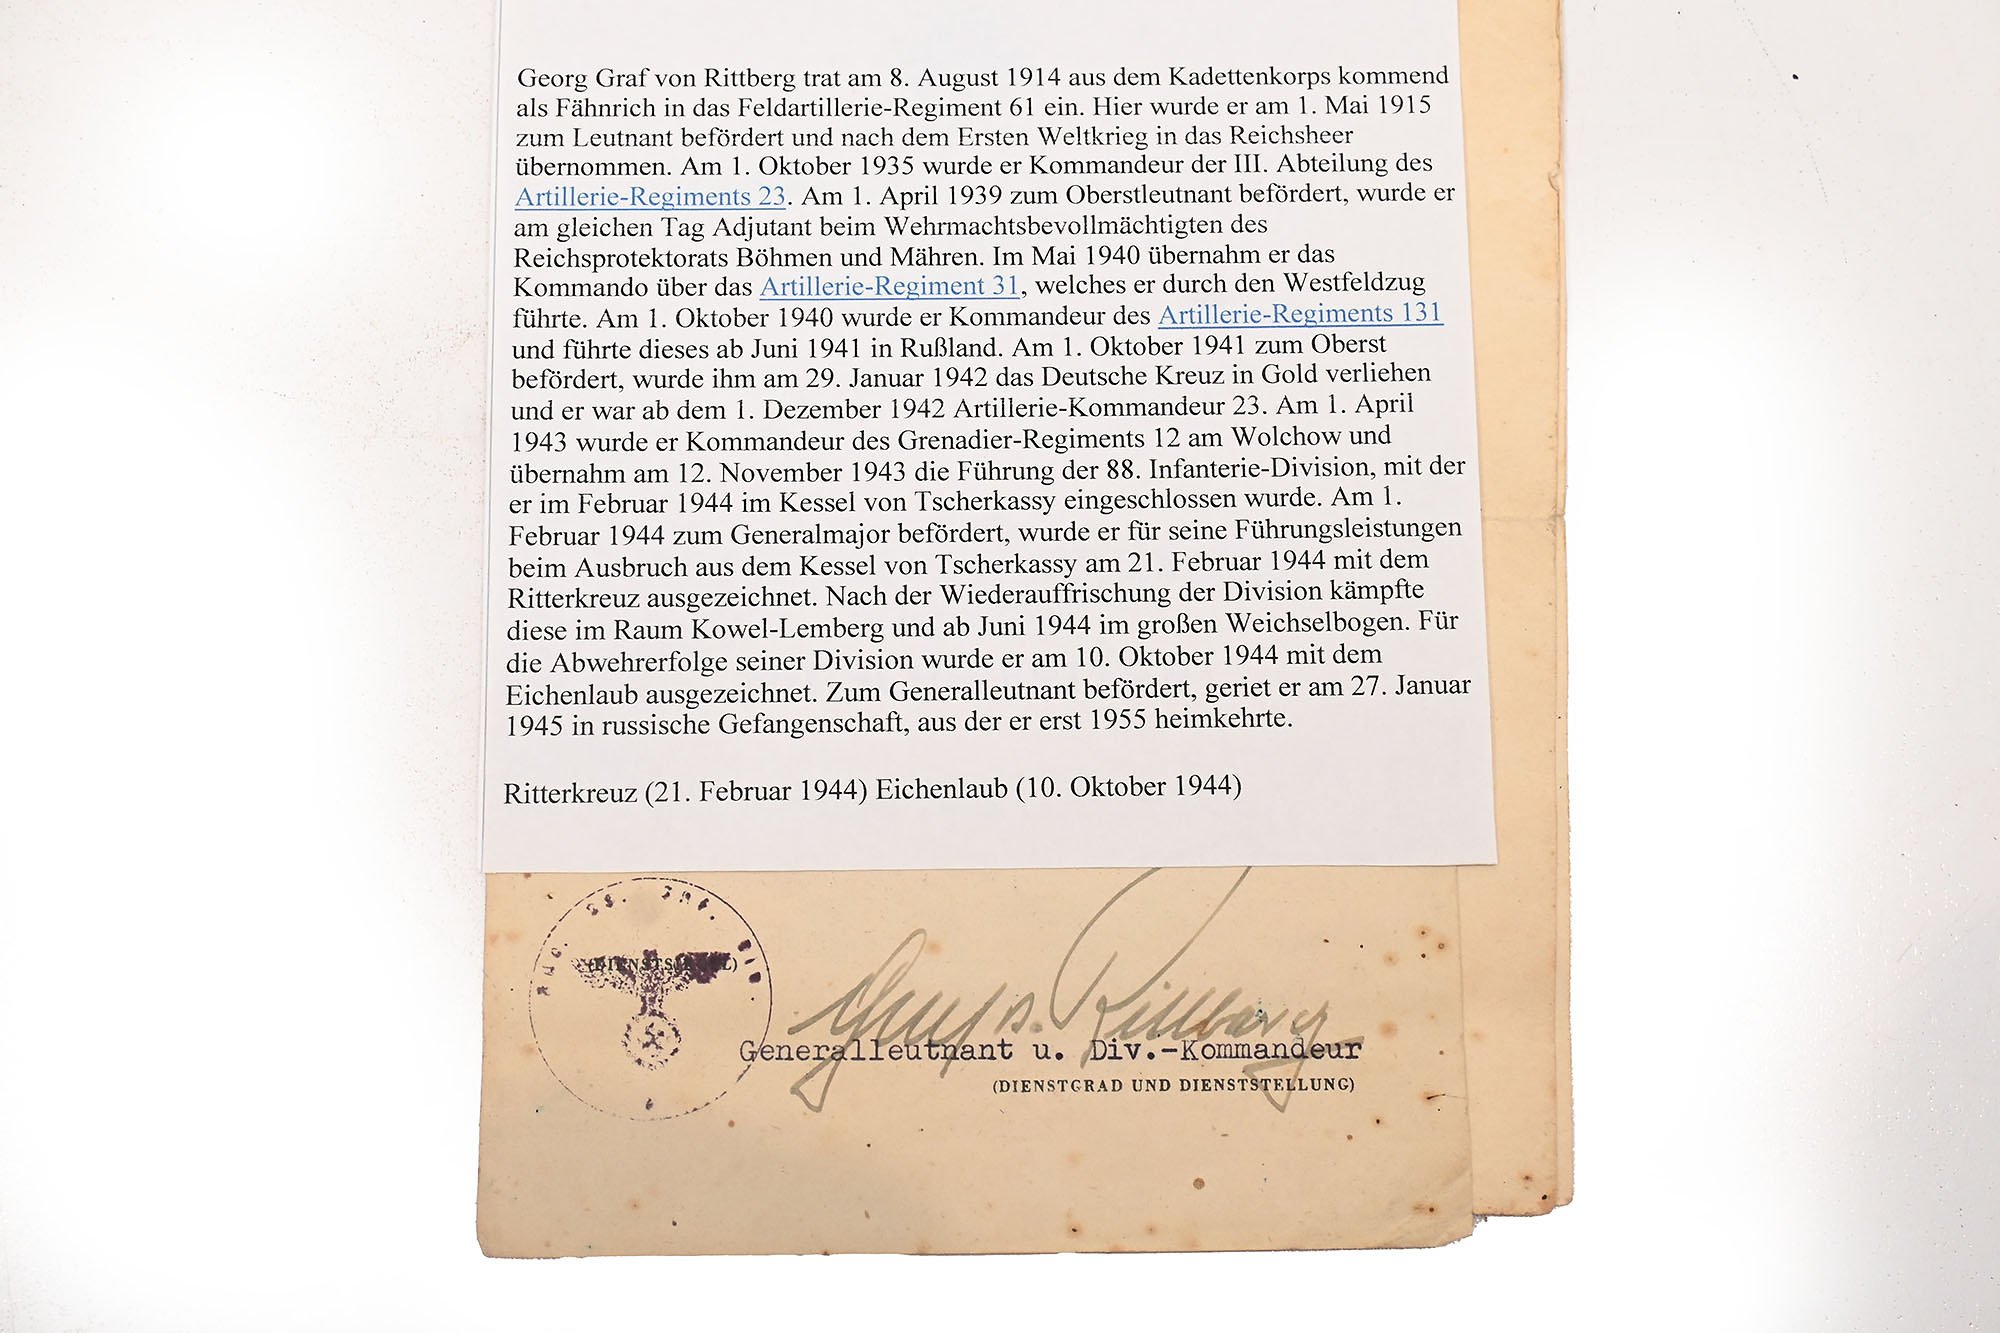 Georg Graf von Rittberg trat am 8. August 1914 aus dem Kadettenkorps kommend
als Fähnrich in das Feldartillerie-Regiment 61 ein. Hier wurde er am 1. Mai 1915
zum Leutnant befördert und nach dem Ersten Weltkrieg in das Reichsheer
übernommen. Am 1. Oktober 1935 wurde er Kommandeur der III. Abteilung des
Artillerie-Regiments 23. Am 1. April 1939 zum Oberstleutnant befördert, wurde er
am gleichen Tag Adjutant beim Wehrmachtsbevollmächtigten des
Reichsprotektorats Böhmen und Mähren. Im Mai 1940 übernahm er das
Kommando über das Artillerie-Regiment 31, welches er durch den Westfeldzug
führte. Am 1. Oktober 1940 wurde er Kommandeur des Artillerie-Regiments 131
und führte dieses ab Juni 1941 in Rußland. Am 1. Oktober 1941 zum Oberst
befördert, wurde ihm am 29. Januar 1942 das Deutsche Kreuz in Gold verliehen
und er war ab dem 1. Dezember 1942 Artillerie-Kommandeur 23. Am 1. April
1943 wurde er Kommandeur des Grenadier-Regiments 12 am Wolchow und
übernahm am 12. November 1943 die Führung der 88. Infanterie-Division, mit der
er im Februar 1944 im Kessel von Tscherkassy eingeschlossen wurde. Am 1.
Februar 1944 zum Generalmajor befördert, wurde er für seine Führungsleistungen
beim Ausbruch aus dem Kessel von Tscherkassy am 21. Februar 1944 mit dem
Ritterkreuz ausgezeichnet. Nach der Wiederauffrischung der Division kämpfte
diese im Raum Kowel-Lemberg und ab Juni 1944 im großen Weichselbogen. Für
die Abwehrerfolge seiner Division wurde er am 10. Oktober 1944 mit dem
Eichenlaub ausgezeichnet. Zum Generalleutnant befördert, geriet er am 27. Januar
1945 in russische Gefangenschaft, aus der er erst 1955 heimkehrte.
Ritterkreuz (21. Februar 1944) Eichenlaub (10. Oktober 1944)
(DIENSTSIEGEL)
Graf v. Rittberg
Generalleutnant u. Div.-Kommandeur
(DIENSTGRAD UND DIENSTSTELLUNG)